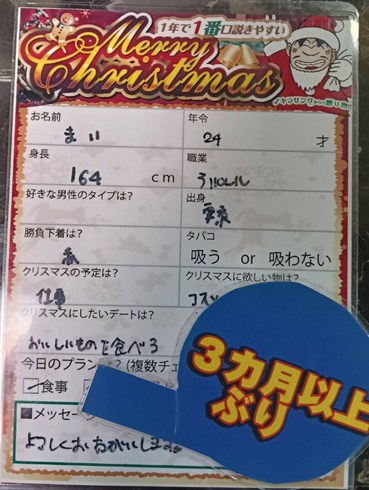 1年で1番口説きやすい
Merry
Christmas
お名前 年令
まい 24 才
身長 職業
164 cm
好きな男性のタイプは? 出身
東京
勝負下着は? タバコ
吸う or 吸わない
クリスマスの予定は? クリスマスに欲しい物は?
仕事 コスメ
クリスマスにしたいデートは?
おいしいものを食べる
今日のプランは? (複数チェ
食事
■メッセー
よろしくおねがいします
3カ月以上
ぶり